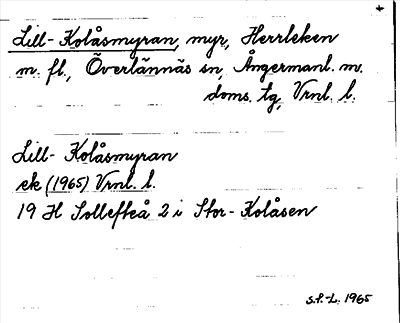 Lill-Kolåsmyran, myr, Herrleken
m. fl., Överlännäs sn, Ångermanl. m.
doms. tg, Vrnl. l.
Lill-Kolåsmyran
ek (1965) Vrnl. l.
19 H Sollefteå 2 i Stor-Kolåsen
S.F.-L. 1965